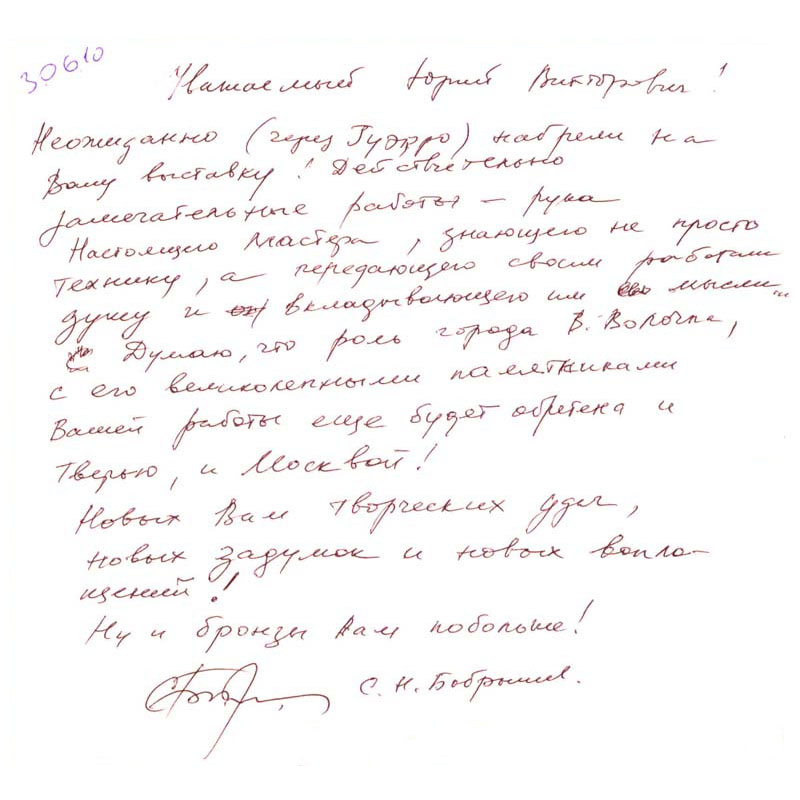 30610
Уважаемый Юрий Викторович!
Неожиданно (через Гуэрро) набрели на
Вашу выставку! Действительно
замечательные работы – рука
Настоящего Мастера, знающего не просто
технику, а передающего своим работам
душу и вкладывающего им мысли...
Думаю, что роль города В. Волочка,
с его великолепными памятниками
Вашей работы еще будет обретена и
Тверью, и Москвой!
Новых Вам творческих удач,
новых задумок и новых вопло-
щений!
Ну и бронзы Вам побольше!
С. Н. Бобрышев.